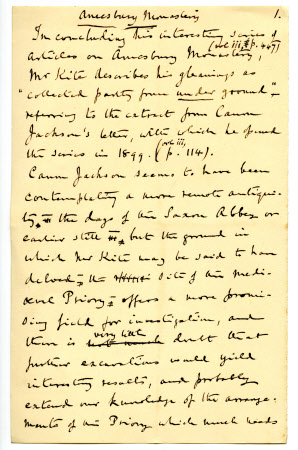 Amesbury Monastery
1.
In concluding this interesting series of
(vol iii, p. 447)
articles on Amesbury Monastery,
Mr Kite describes his gleanings as
"collected partly from under ground" –
referring to the extract from Canon
Jackson's letter, with which he opened
the series in 1899. (vol iii, p. 114).
Canon Jackson seems to have been
contemplating a more remote antiqui-
ty – the days of the Saxon Abbey or
earlier still – but the ground in
which Mr Kite may be said to have
delved – the site of the Medi-
æval Priory – offers a more promi-
sing field for investigation, and
there is very little doubt that
further excavations would yield
interesting results, and probably
extend our knowledge of the arrange-
ments of the Priory which much needs